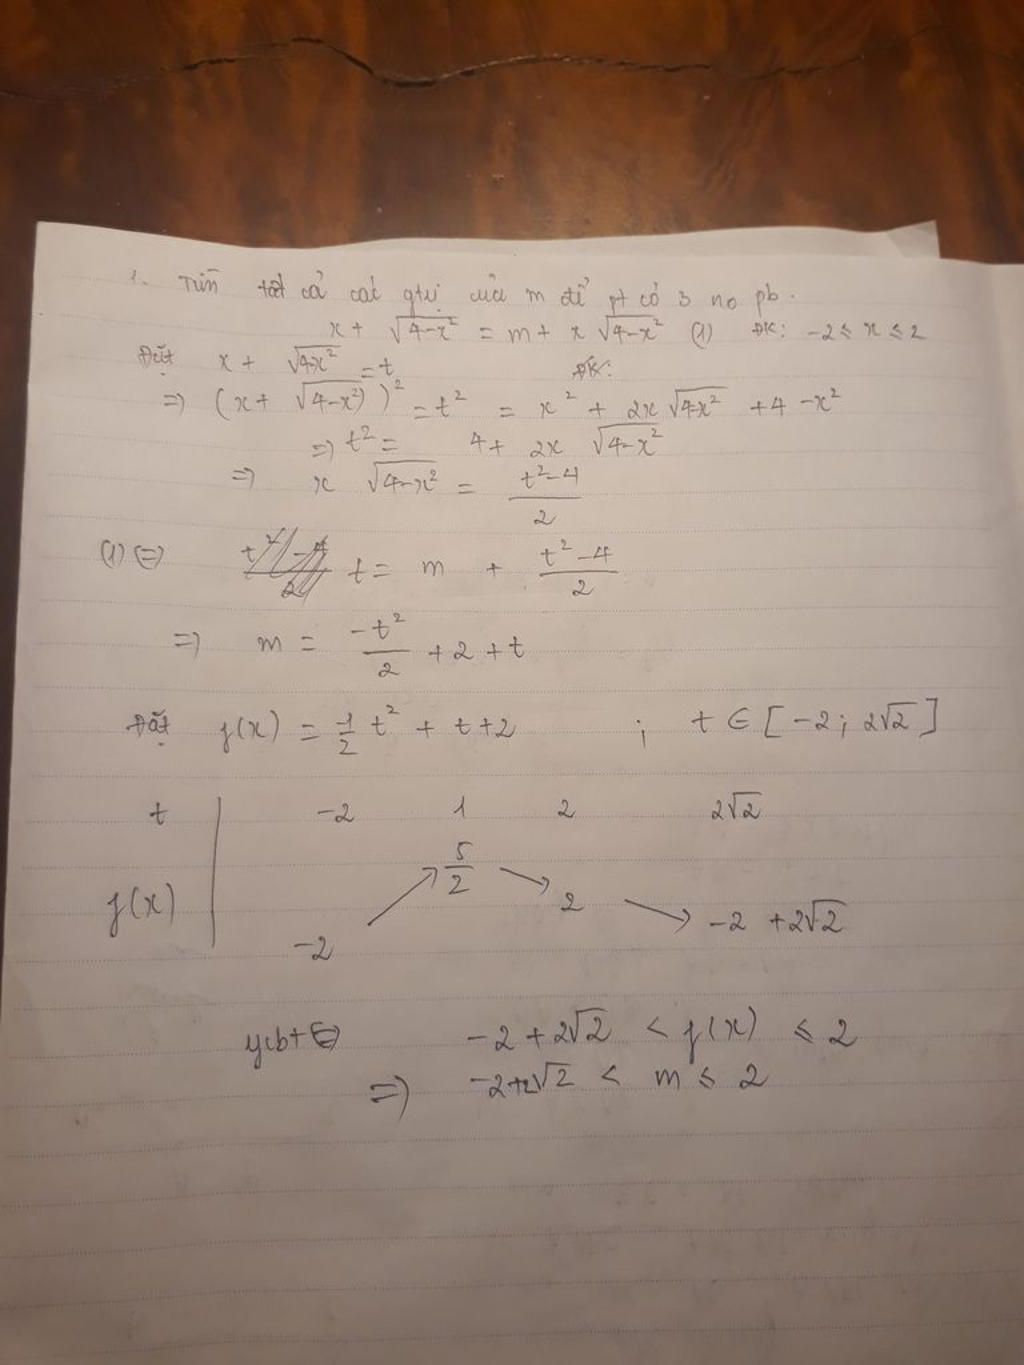 1. Tìm tất cả các gtrị của m để pt có 3 no pb.
x + √(4-x²) = m + x √(4-x²) (1) ĐK: -2 ≤ x ≤ 2
Đặt x + √(4-x²) = t ĐK:
=> (x + √(4-x²))² = t² = x² + 2x √(4-x²) + 4 - x²
=> t² = 4 + 2x √(4-x²)
=> x √(4-x²) = (t²-4)/2
(1) <=> t = m + (t²-4)/2
=> m = -t²/2 + 2 + t
Đặt f(x) = -1/2 t² + t + 2 ; t ∈ [-2; 2√2]
t | -2 1 2 2√2
f(x) | -2 ↗ 5/2 ↘ 2 ↘ -2 + 2√2
ycbt <=> -2 + 2√2 < f(x) ≤ 2
=> -2+2√2 < m ≤ 2